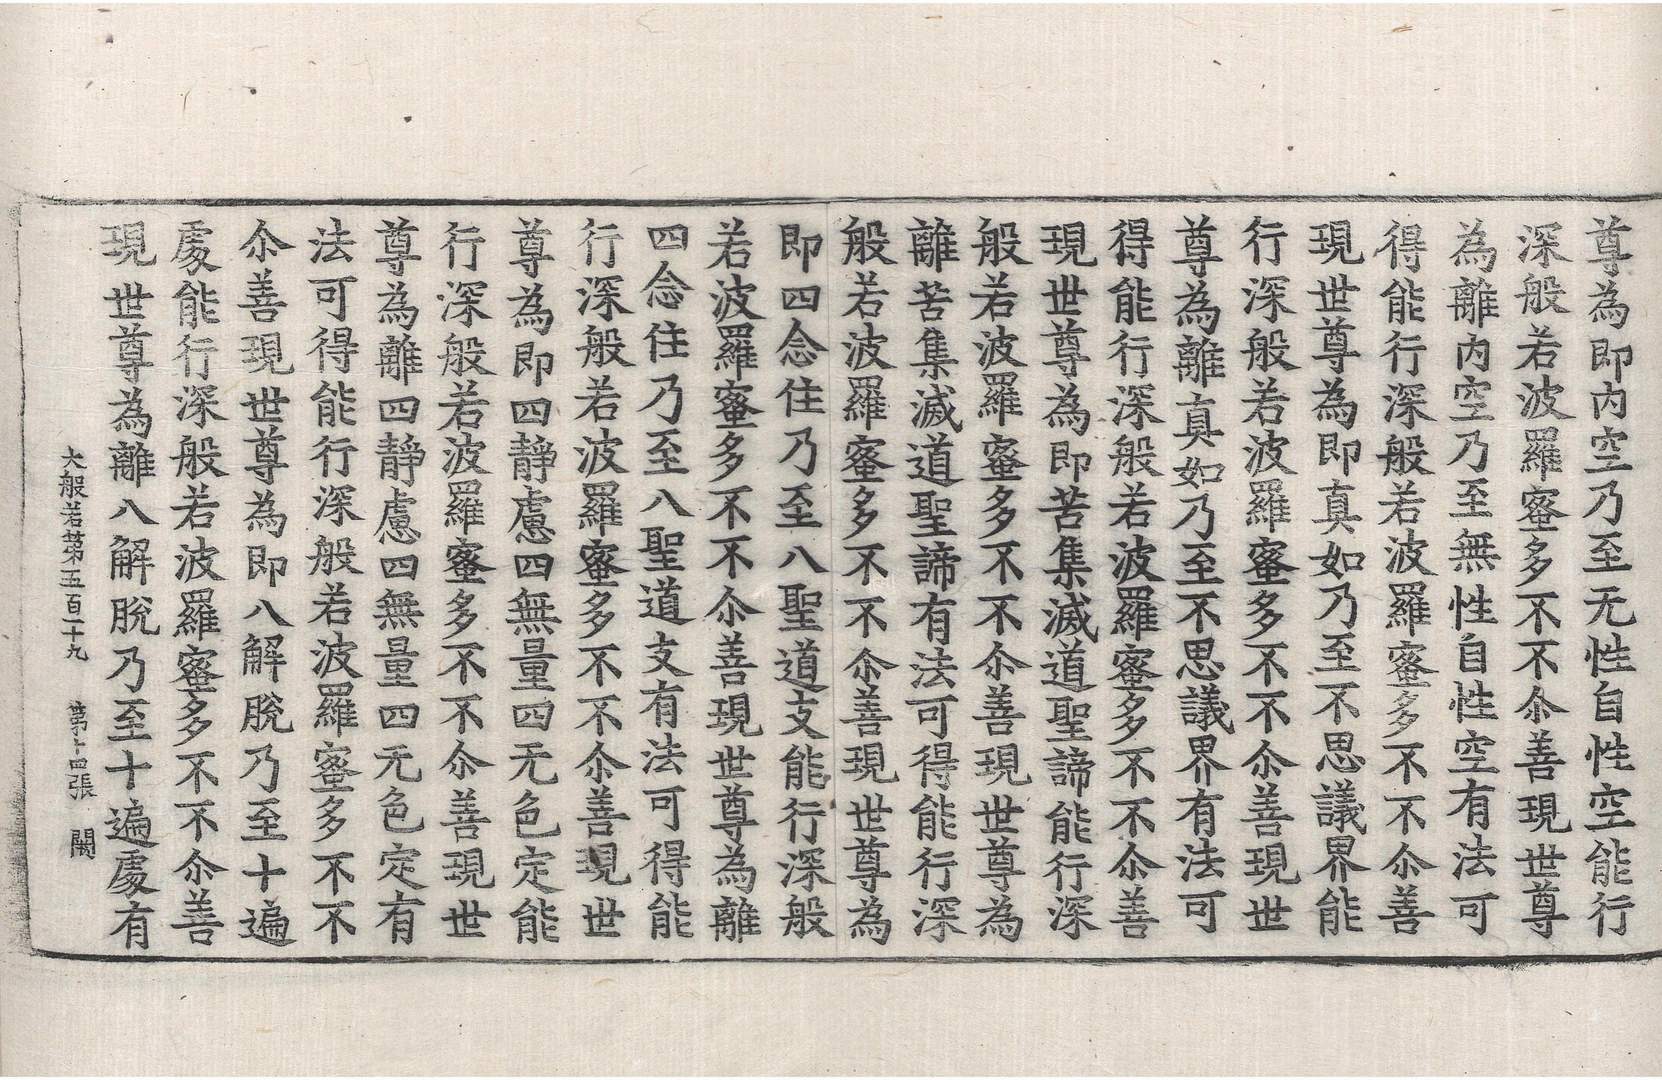 尊為即内空乃至无性自性空能行
深般若波羅蜜多不不尒善現世尊
為離内空乃至無性自性空有法可
得能行深般若波羅蜜多不不尒善
現世尊為即真如乃至不思議界能
行深般若波羅蜜多不不尒善現世
尊為離真如乃至不思議界有法可
得能行深般若波羅蜜多不不尒善
現世尊為即苦集滅道聖諦能行深
般若波羅蜜多不不尒善現世尊為
離苦集滅道聖諦有法可得能行深
般若波羅蜜多不不尒善現世尊為
即四念住乃至八聖道支能行深般
若波羅蜜多不不尒善現世尊為離
四念住乃至八聖道支有法可得能
行深般若波羅蜜多不不尒善現世
尊為即四靜慮四無量四无色定能
行深般若波羅蜜多不不尒善現世
尊為離四靜慮四無量四无色定有
法可得能行深般若波羅蜜多不不
尒善現世尊為即八解脫乃至十遍
處能行深般若波羅蜜多不不尒善
現世尊為離八解脫乃至十遍處有
大般若第五百二十九 第十四張 闕